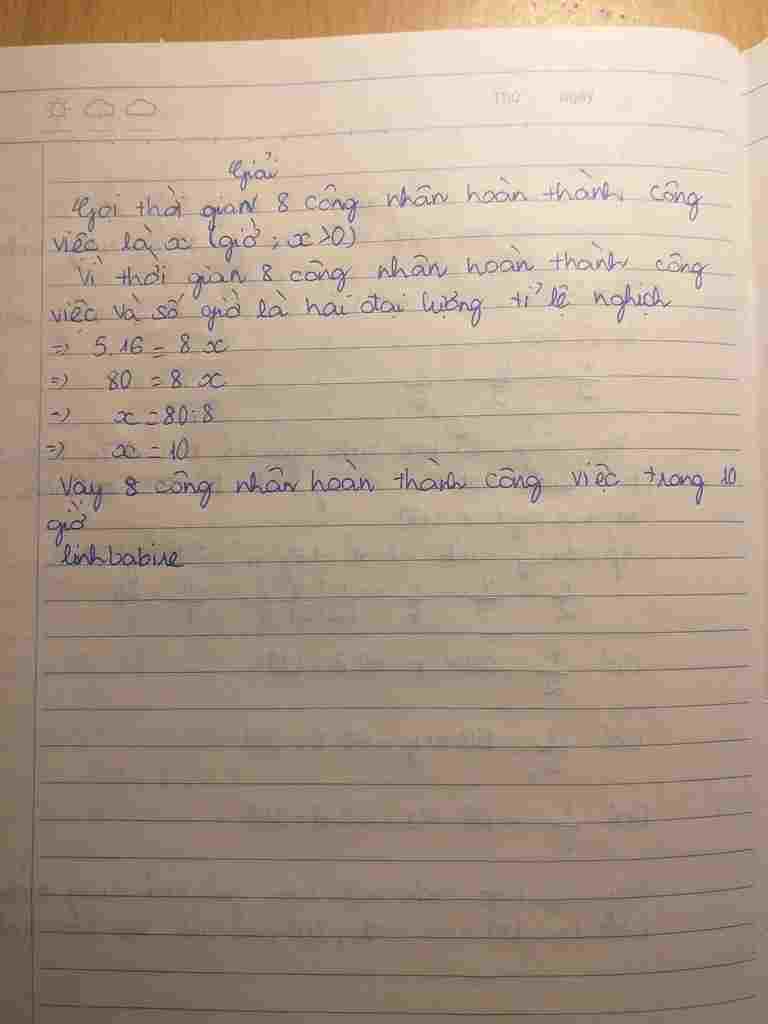 Thứ Ngày
Giải
Gọi thời gian 8 công nhân hoàn thành công
việc là x (giờ ; x>0)
Vì thời gian 8 công nhân hoàn thành công
việc và số giờ là hai đại lượng tỉ lệ nghịch
=> 5.16 = 8 x
=> 80 = 8. x
=> x = 80:8
=> x = 10
Vậy 8 công nhân hoàn thành công việc trong 10
giờ
linhbabine